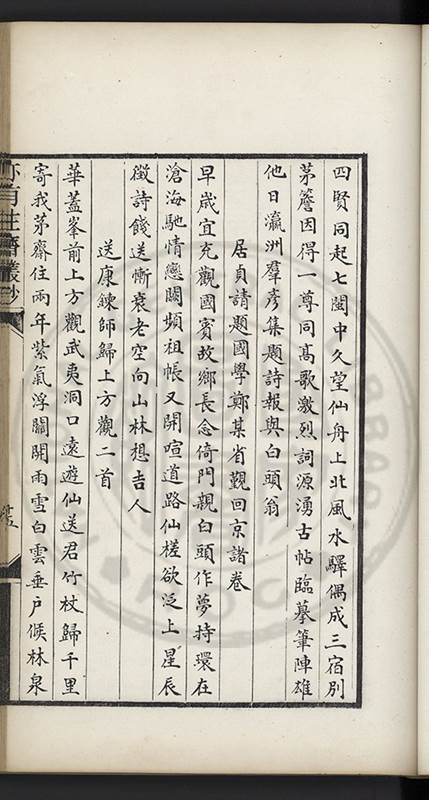 四賢同起七閩中久望仙舟上北風水驛偶成三宿別
茅簷因得一尊同高歌激烈詞源湧古帖臨摹筆陣雄
他日瀛洲羣彥集題詩報與白頭翁
居貞請題國學鄭某省覲回京諸卷
早歲宜充觀國賓故鄉長念倚門親白頭作夢持環在
滄海馳情戀闕頻祖帳又開喧道路仙槎欲泛上星辰
徵詩餞送慚衰老空向山林想吉人
送康鍊師歸上方觀二首
華蓋峯前上方觀武夷洞口遠遊仙送君竹杖歸千里
寄我茅齋住兩年紫氣浮關開雨雪白雲垂戶候林泉
亦有生齋叢鈔